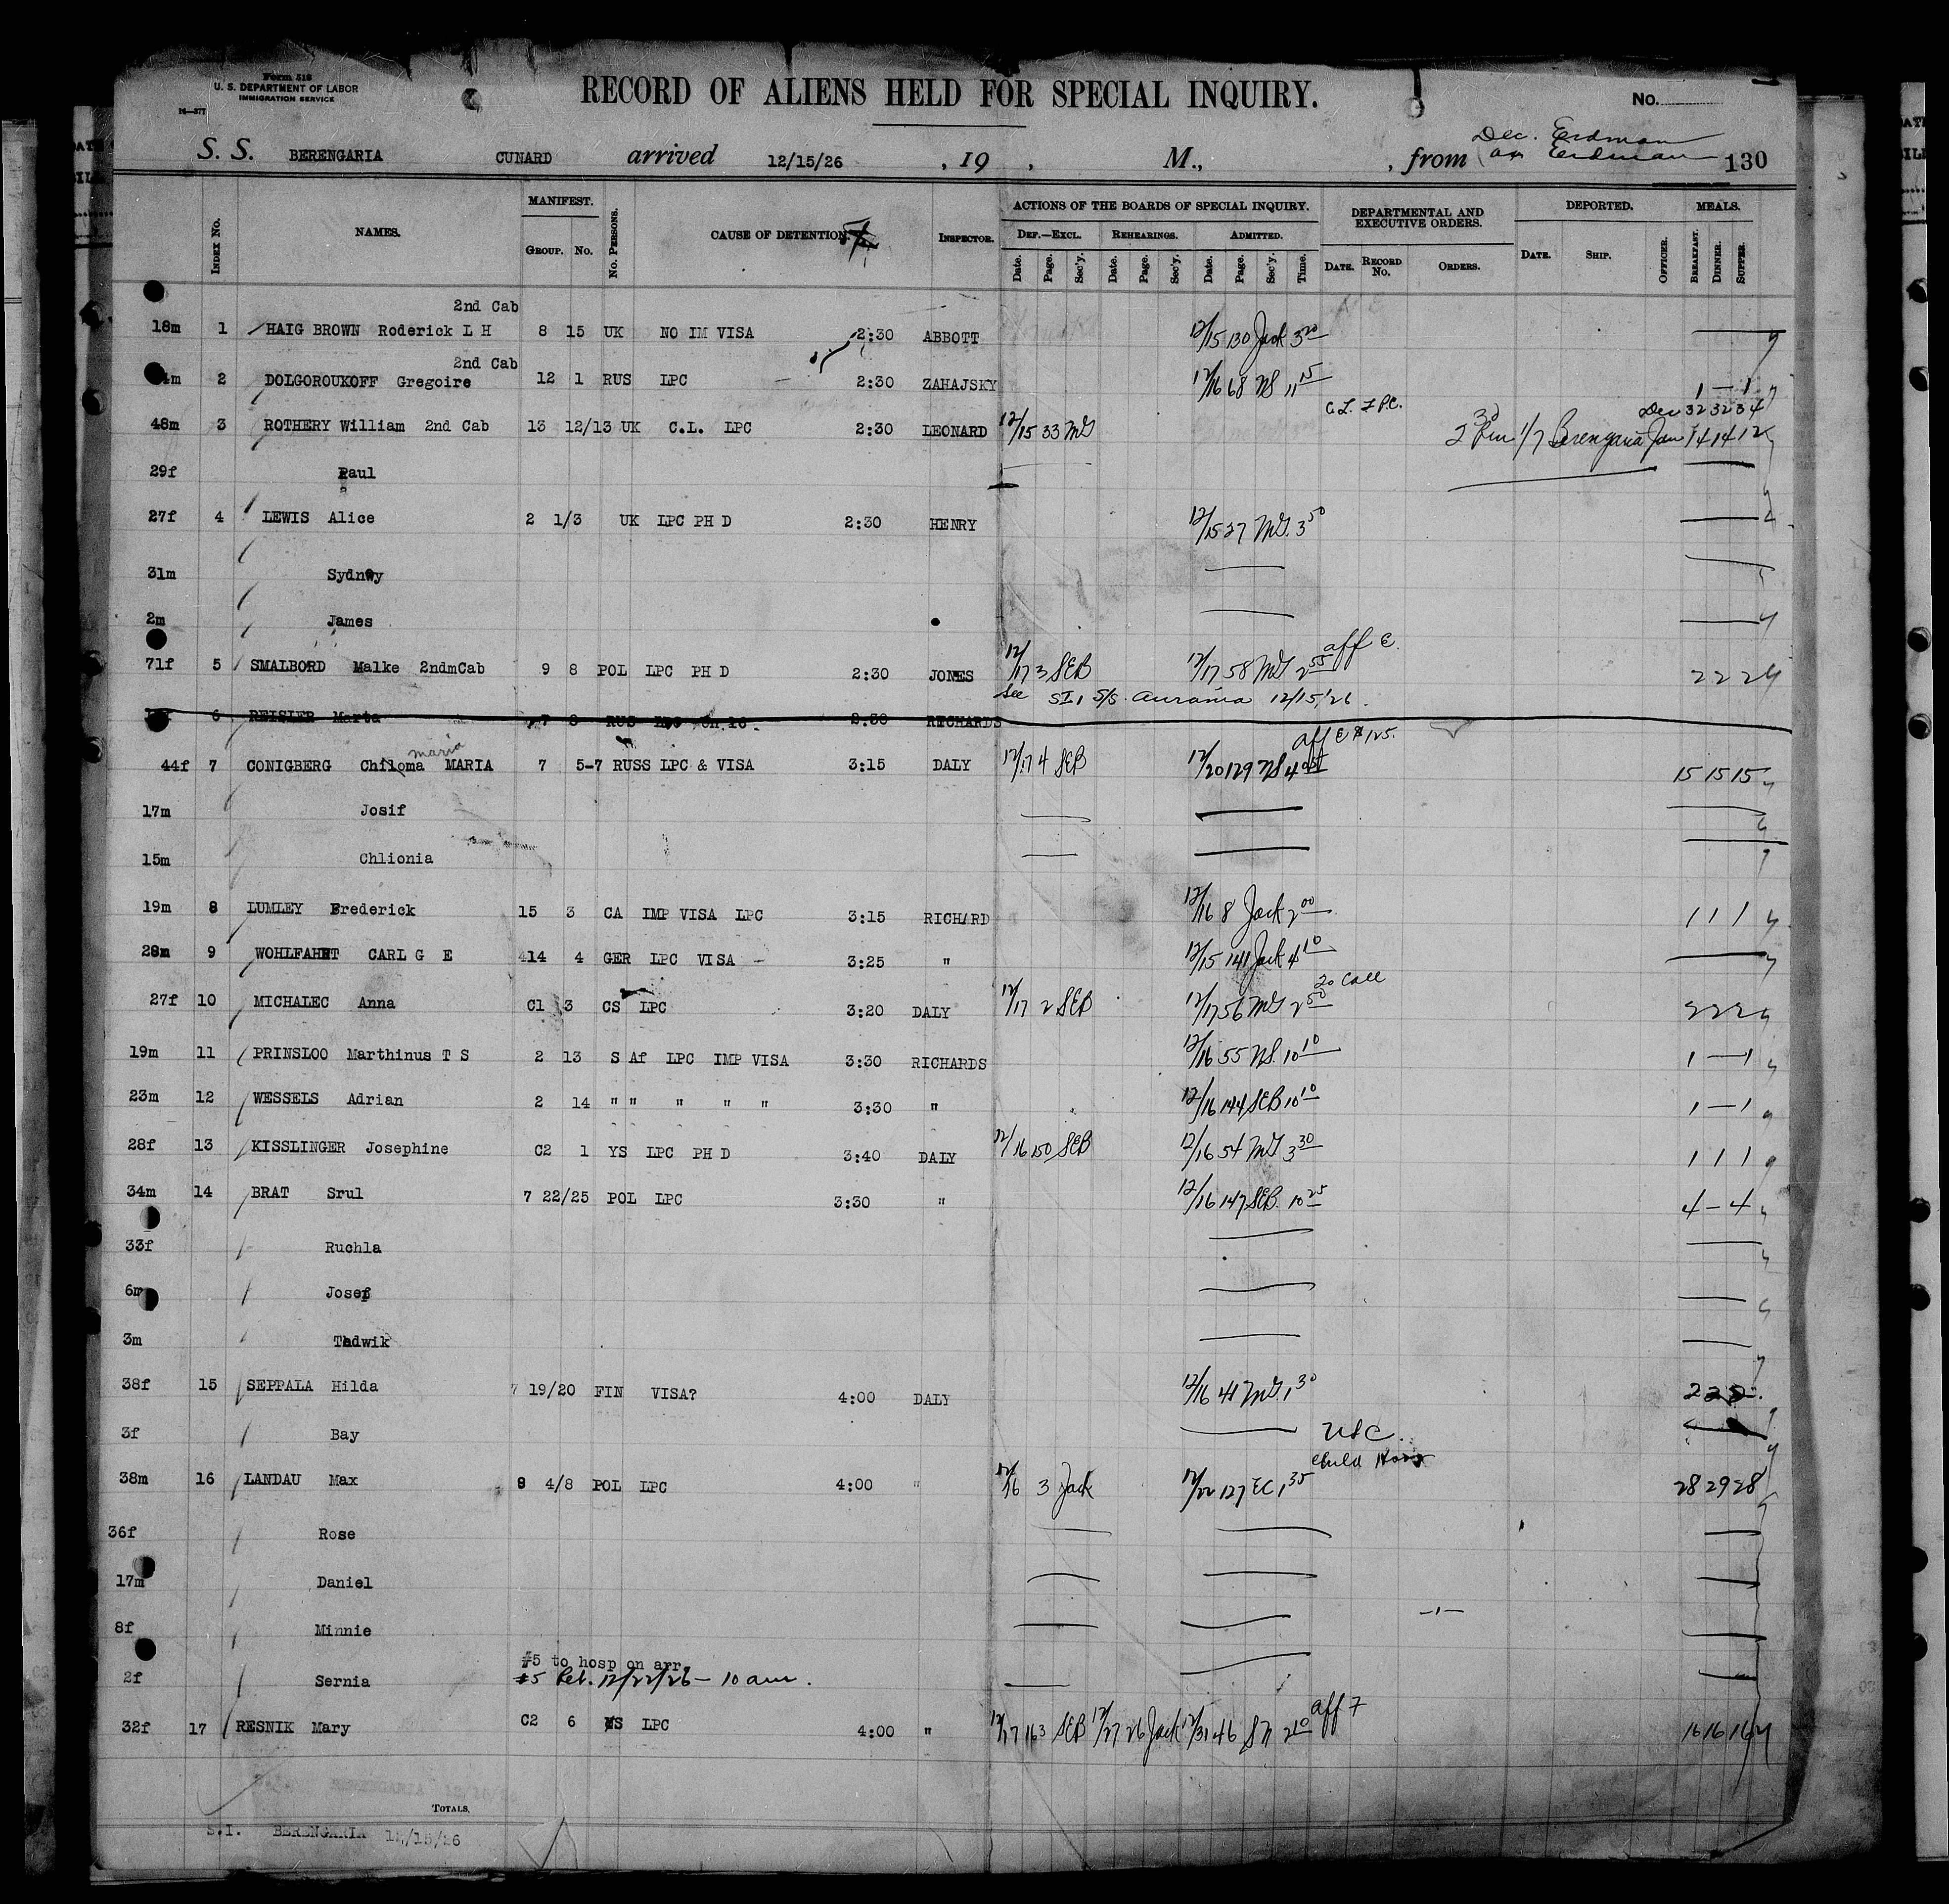 Form 518
U. S. DEPARTMENT OF LABOR
IMMIGRATION SERVICE
14—377
RECORD OF ALIENS HELD FOR SPECIAL INQUIRY.
No.
Dec. Erdman
S. S. BERENGARIA CUNARD arrived 12/15/26 , 19 , M., , from Erdman 130
MANIFEST. ACTIONS OF THE BOARDS OF SPECIAL INQUIRY. DEPARTMENTAL AND EXECUTIVE ORDERS. DEPORTED. MEALS.
Index No. NAMES. GROUP. No. No. Persons. CAUSE OF DETENTION. INSPECTOR. DEF.—EXCL. REHEARINGS. ADMITTED.
Date. Page. Sec'y. Date. Page. Sec'y. Date. Page. Sec'y. Time. DATE. RECORD No. ORDERS. DATE. SHIP. OFFICER. BREAKFAST. DINNER. SUPPER.
2nd Cab
18m 1 HAIG BROWN Roderick L H 8 15 UK NO IM VISA 2:30 ABBOTT 12/15 130 Jack 3 20
2nd Cab
2 DOLGOROUKOFF Gregoire 12 1 RUS LPC 2:30 ZAHAJSKY 12/16 68 NS 11 15 1 — 1
C.L. LPC. Dec 32 32 34
48m 3 ROTHERY William 2nd Cab 13 12/13 UK C.L. LPC 2:30 LEONARD 12/15 33 MG 1/7 Berengaria Jan 14 14 12
29f Paul
27f 4 LEWIS Alice 2 1/3 UK LPC PH D 2:30 HENRY 12/15 27 MG. 3 50
31m Sydney
2m James
71f 5 SMALBORD Malke 2ndmCab 9 8 POL LPC PH D 2:30 JONES 12/17 3 SEB 12/17 58 MG 2 55 aff C. 2 2 2
See SI, S/S. Aurania 12/15/26.
6 REISLER Marta 7 8 RUS 2:30 RICHARDS
maria aff C $125.
44f 7 CONIGBERG Chiloma MARIA 7 5-7 RUSS LPC & VISA 3:15 DALY 12/17 4 SEB 12/20 129 NS 4 15 15 15
17m Josif
15m Chlionia
19m 8 LUMLEY Frederick 15 3 CA IMP VISA LPC 3:15 RICHARD 12/16 8 Jack 2 00 1 1 1
28m 9 WOHLFAHRT CARL G E 414 4 GER LPC VISA 3:25 " 12/15 141 Jack 4 10
to call
27f 10 MICHALEC Anna C1 3 CS LPC 3:20 DALY 12/17 2 SEB 12/17 56 MG 2 50 2 2 2
19m 11 PRINSLOO Marthinus T S 2 13 S Af LPC IMP VISA 3:30 RICHARDS 12/16 55 NS. 10 10 1 — 1
23m 12 WESSELS Adrian 2 14 " " " " " 3:30 " 12/16 144 SEB 10 10 1 — 1
28f 13 KISSLINGER Josephine C2 1 YS LPC PH D 3:40 DALY 12/16 150 SEB 12/16 54 MG 3 30 1 1 1
34m 14 BRAT Srul 7 22/25 POL LPC 3:30 " 12/16 147 SEB. 10 25 4 — 4
33f Ruchla
6m Josef
3m Tadwik
38f 15 SEPPALA Hilda 7 19/20 FIN VISA? 4:00 DALY 12/16 41 MG 1 30 2
3f Bay USC.
child
38m 16 LANDAU Max 8 4/8 POL LPC 4:00 " 12/16 3 Jack 12/22 127 EC 1 35 28 29 28
36f Rose
17m Daniel
8f Minnie
#5 to hosp on arr.
2f Sernia #5 Rel. 12/22/26 — 10 am.
32f 17 RESNIK Mary C2 6 YS LPC 4:00 " 12/17 163 SEB 12/27 26 Jack 12/31 46 SN 2 10 aff 7 16 16 16
S.I. BERENGARIA
TOTALS.
S.I. BERENGARIA 12/15/26